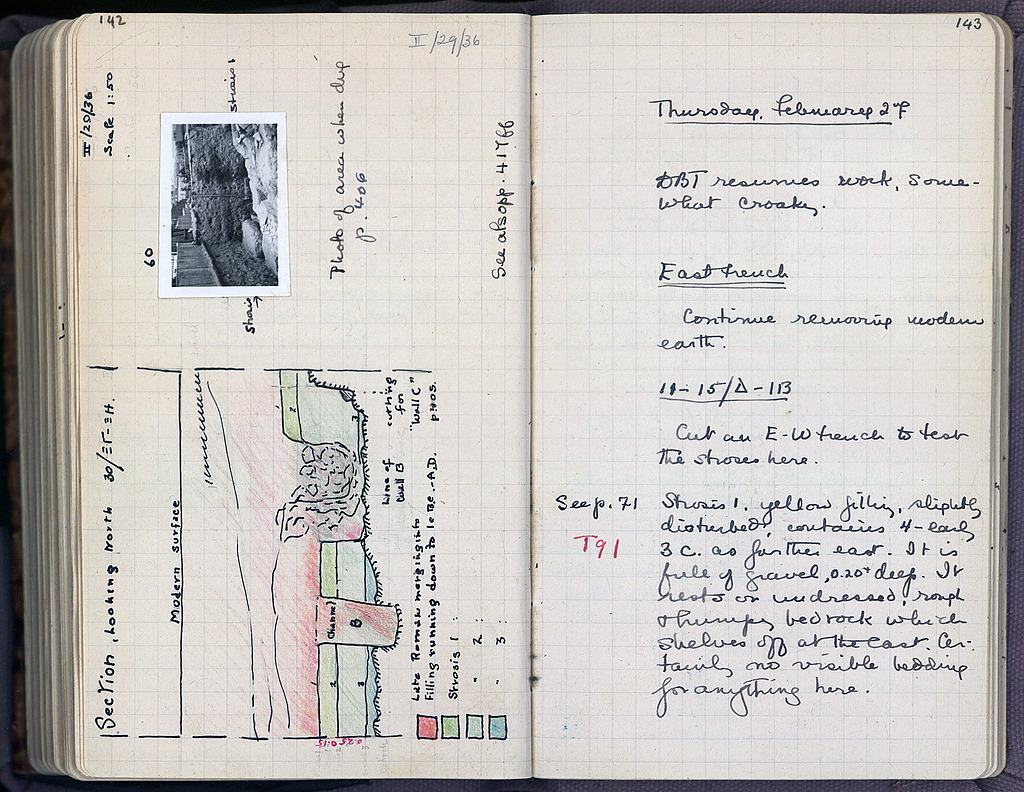 142
II/29/36
II/20/36
Scale 1:50
60
strosis 1
Photo of area when dug
p. 406
See also pp. 417 ff
Section, looking North 30/ΞΓ-ΞΗ.
Modern Surface
Channel
B
1
2
3
2
3
Line of
Wall B
cutting
for
"Wall C"
pithos.
Late Roman merging into
filling running down to 1c B.C.-A.D.
Strosis 1 :
" 2 :
" 3 :
143
Thursday, February 27
DBT resumes work, some-
what croaky.
East trench
Continue removing modern
earth.
11-15/Δ-ΙΒ
Cut an E-W trench to test
the stroses here.
See p. 71
T91
Strosis 1, yellow filling, slightly
disturbed, contains 4-early
3 c. as further east. It is
full of gravel, 0.20+ deep. It
rests on undressed, rough
& humpy bedrock which
shelves off at the east. Cer-
tainly no visible bedding
for anything here.